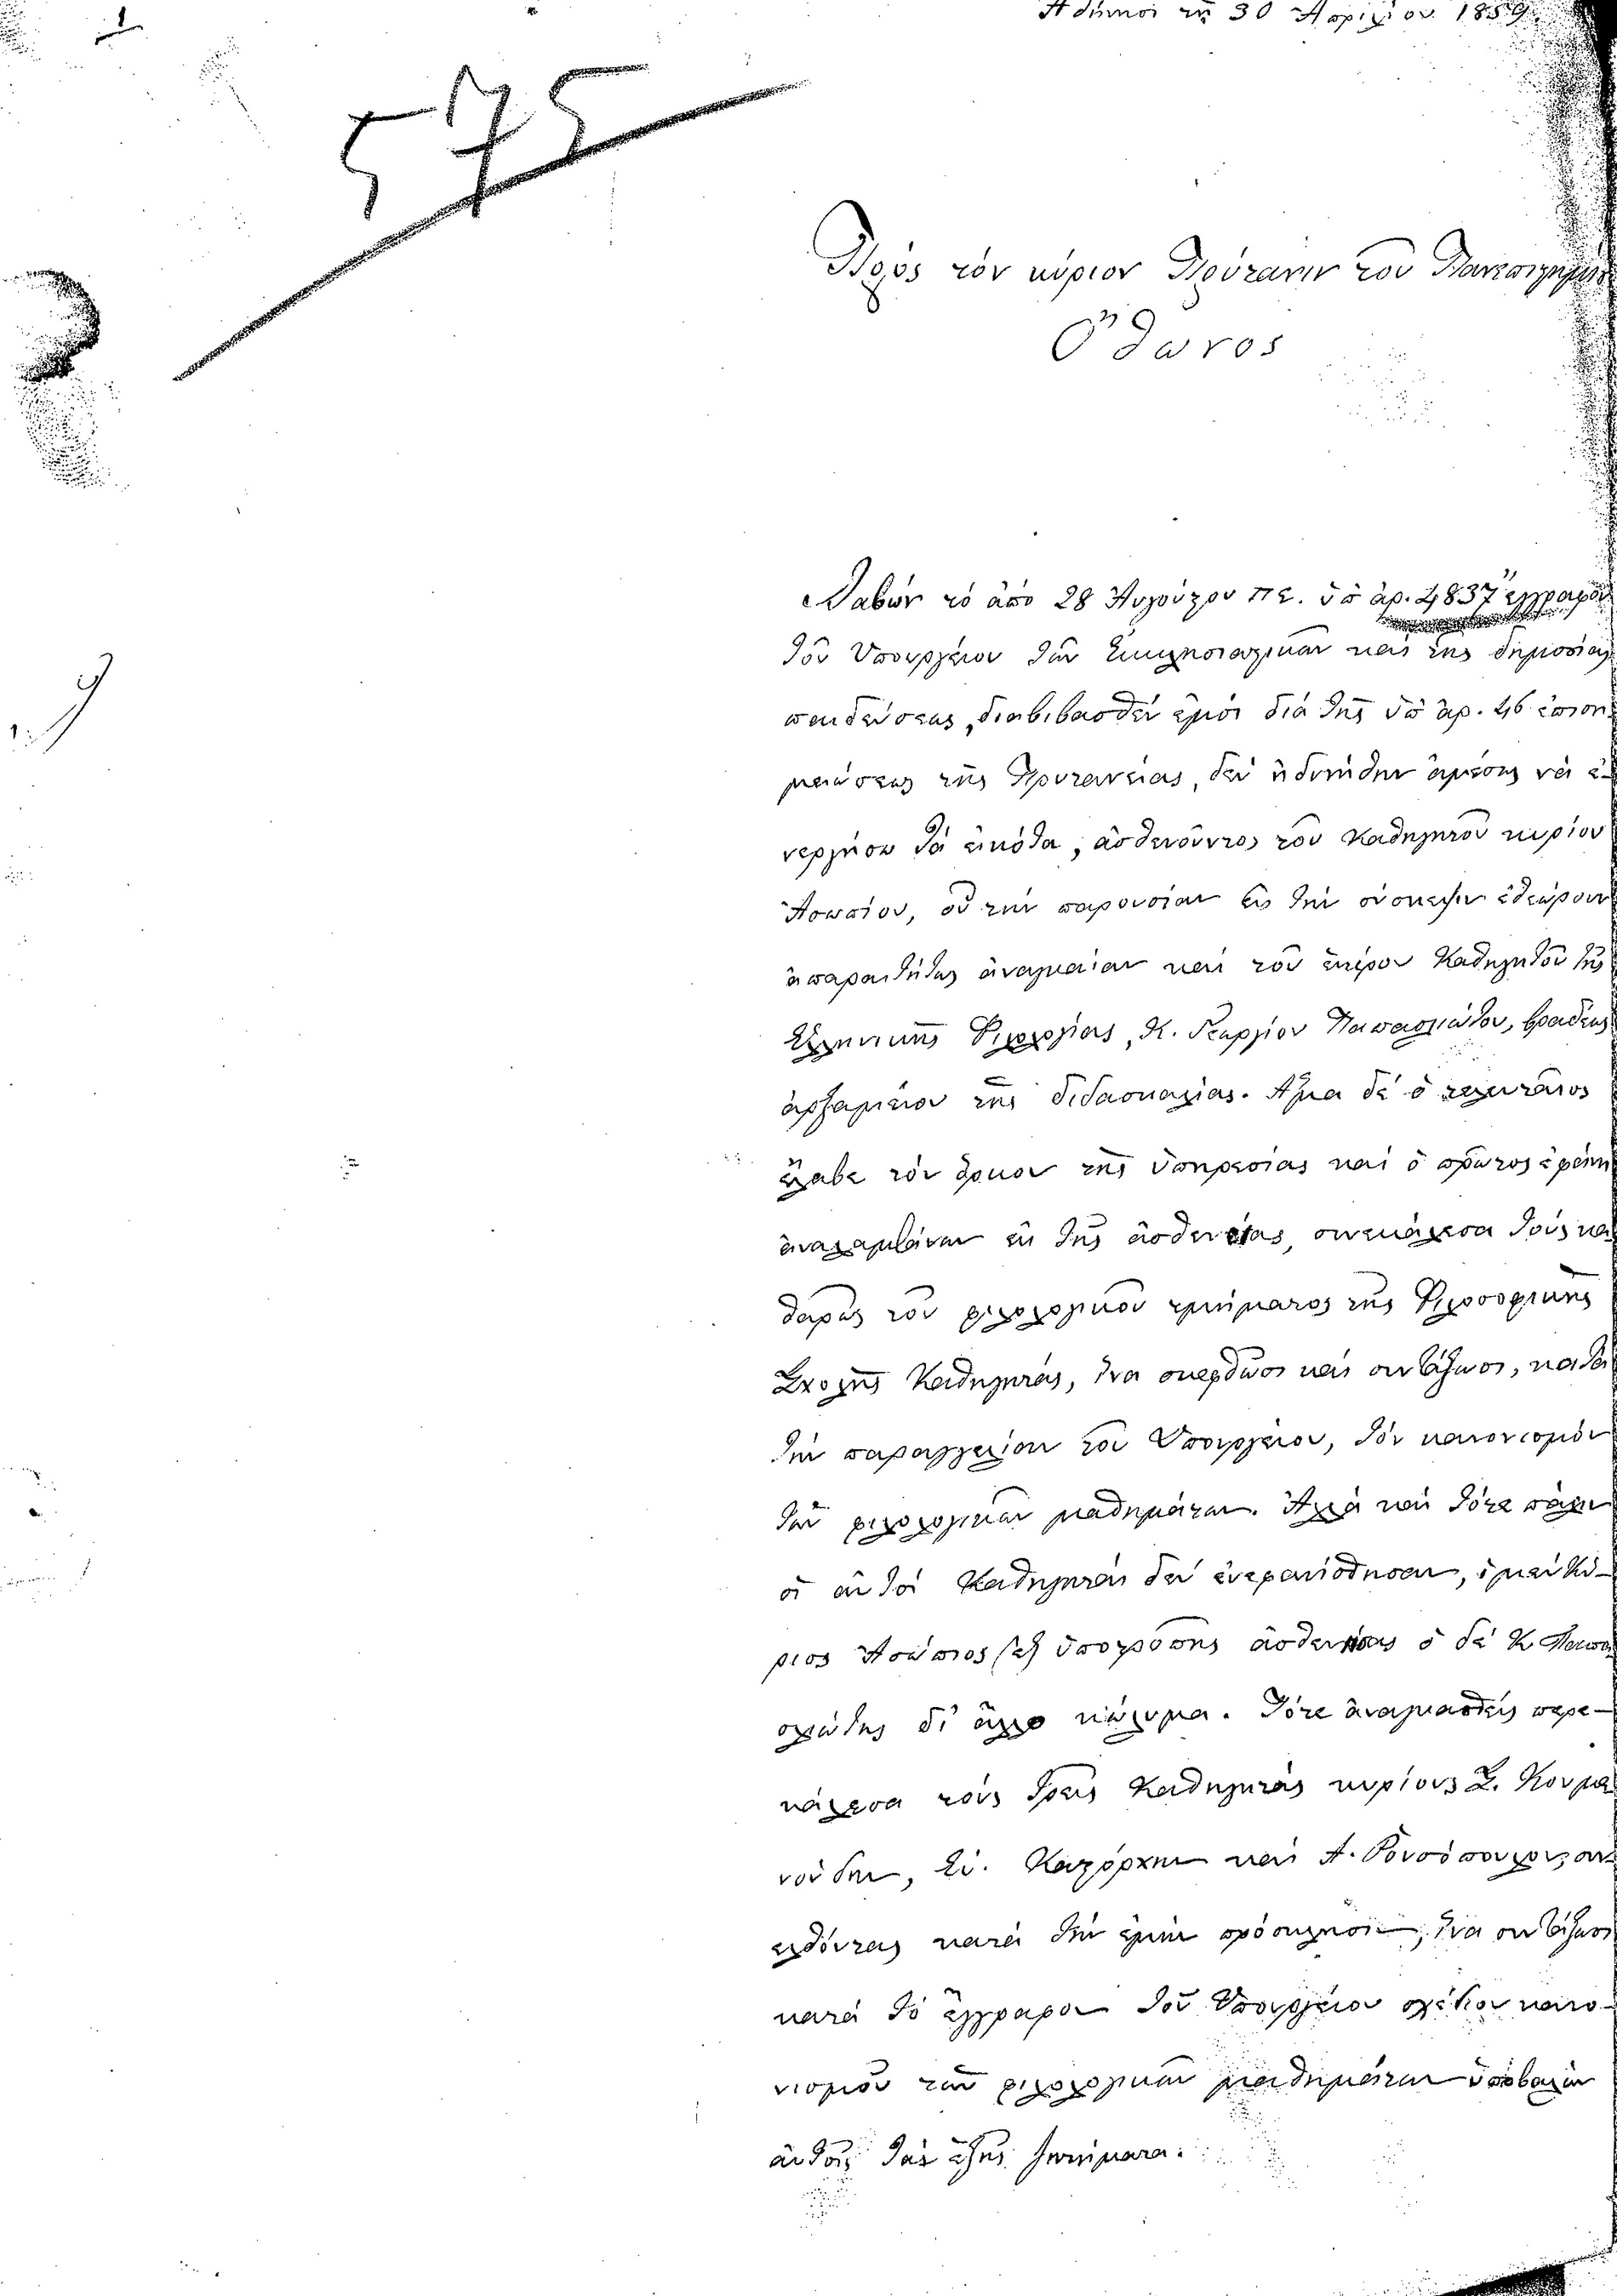 1
Ἀθήνησι τῇ 30 Ἀπριλίου 1859.
575
Πρὸς τὸν κύριον Πρύτανιν τοῦ Πανεπιστημίου
Ὄθωνος
Λαβὼν τὸ ἀπὸ 28 Αὐγούστου πε. ὑπ' ἀρ. 4837 ἔγγραφον
τοῦ Ὑπουργείου τῶν Ἐκκλησιαστικῶν καὶ τῆς δημοσίας
παιδεύσεως, διαβιβασθὲν ἐμοὶ διὰ τῆς ὑπ' ἀρ. 46 ἐπιση-
μειώσεως τῆς Πρυτανείας, δὲν ἠδυνήθην ἀμέσως νὰ ἐ-
νεργήσω τὰ εἰκότα, ἀσθενοῦντος τοῦ Καθηγητοῦ κυρίου
Ἀσωπίου, οὗ τὴν παρουσίαν εἰς τὴν σύσκεψιν ἐθεώρουν
ἀπαραιτήτως ἀναγκαίαν καὶ τοῦ ἑτέρου Καθηγητοῦ τῆς
Ἑλληνικῆς Φιλολογίας, Κ. Γεωργίου Παπασλιώτου, βραδέως
ἀρξαμένου τῆς διδασκαλίας. Ἅμα δὲ ὁ τελευταῖος
ἔλαβε τὸν ὅρκον τῆς ὑπηρεσίας καὶ ὁ πρῶτος ἐφάνη
ἀναλαμβάνων ἐκ τῆς ἀσθενείας, συνεκάλεσα τοὺς κα
θαρῶς τοῦ φιλολογικοῦ τμήματος τῆς Φιλοσοφικῆς
Σχολῆς Καθηγητάς, ἵνα σκεφθῶσι καὶ συντάξωσι, κατὰ
τὴν παραγγελίαν τοῦ Ὑπουργείου, τὸν κανονισμὸν
τῶν φιλολογικῶν μαθημάτων. Ἀλλὰ καὶ τότε πάλιν
οἱ αὐτοὶ Καθηγηταὶ δὲν ἐνεφανίσθησαν, ὁ μὲν Κύ-
ριος Ἀσώπιος ἐξ ὑποτροπῆς ἀσθενείας ὁ δὲ Κ. Παπα
σλιώτης δι' ἄλλο κώλυμα. Τότε ἀναγκασθεὶς παρε-
κάλεσα τοὺς τρεῖς Καθηγητὰς κυρίους Σ. Κουμα
νούδην, Εὐ. Καστόρχην καὶ Ἀ. Ῥουσόπουλον, συν
ελθόντας κατὰ τὴν ἐμὴν πρόσκλησιν, ἵνα συντάξωσι
κατὰ τὸ ἔγγραφον τοῦ Ὑπουργείου σχέδιον κανο-
νισμοῦ τῶν φιλολογικῶν μαθημάτων ὑποβαλὼν
αὐτοῖς τὰ ἑξῆς ζητήματα.